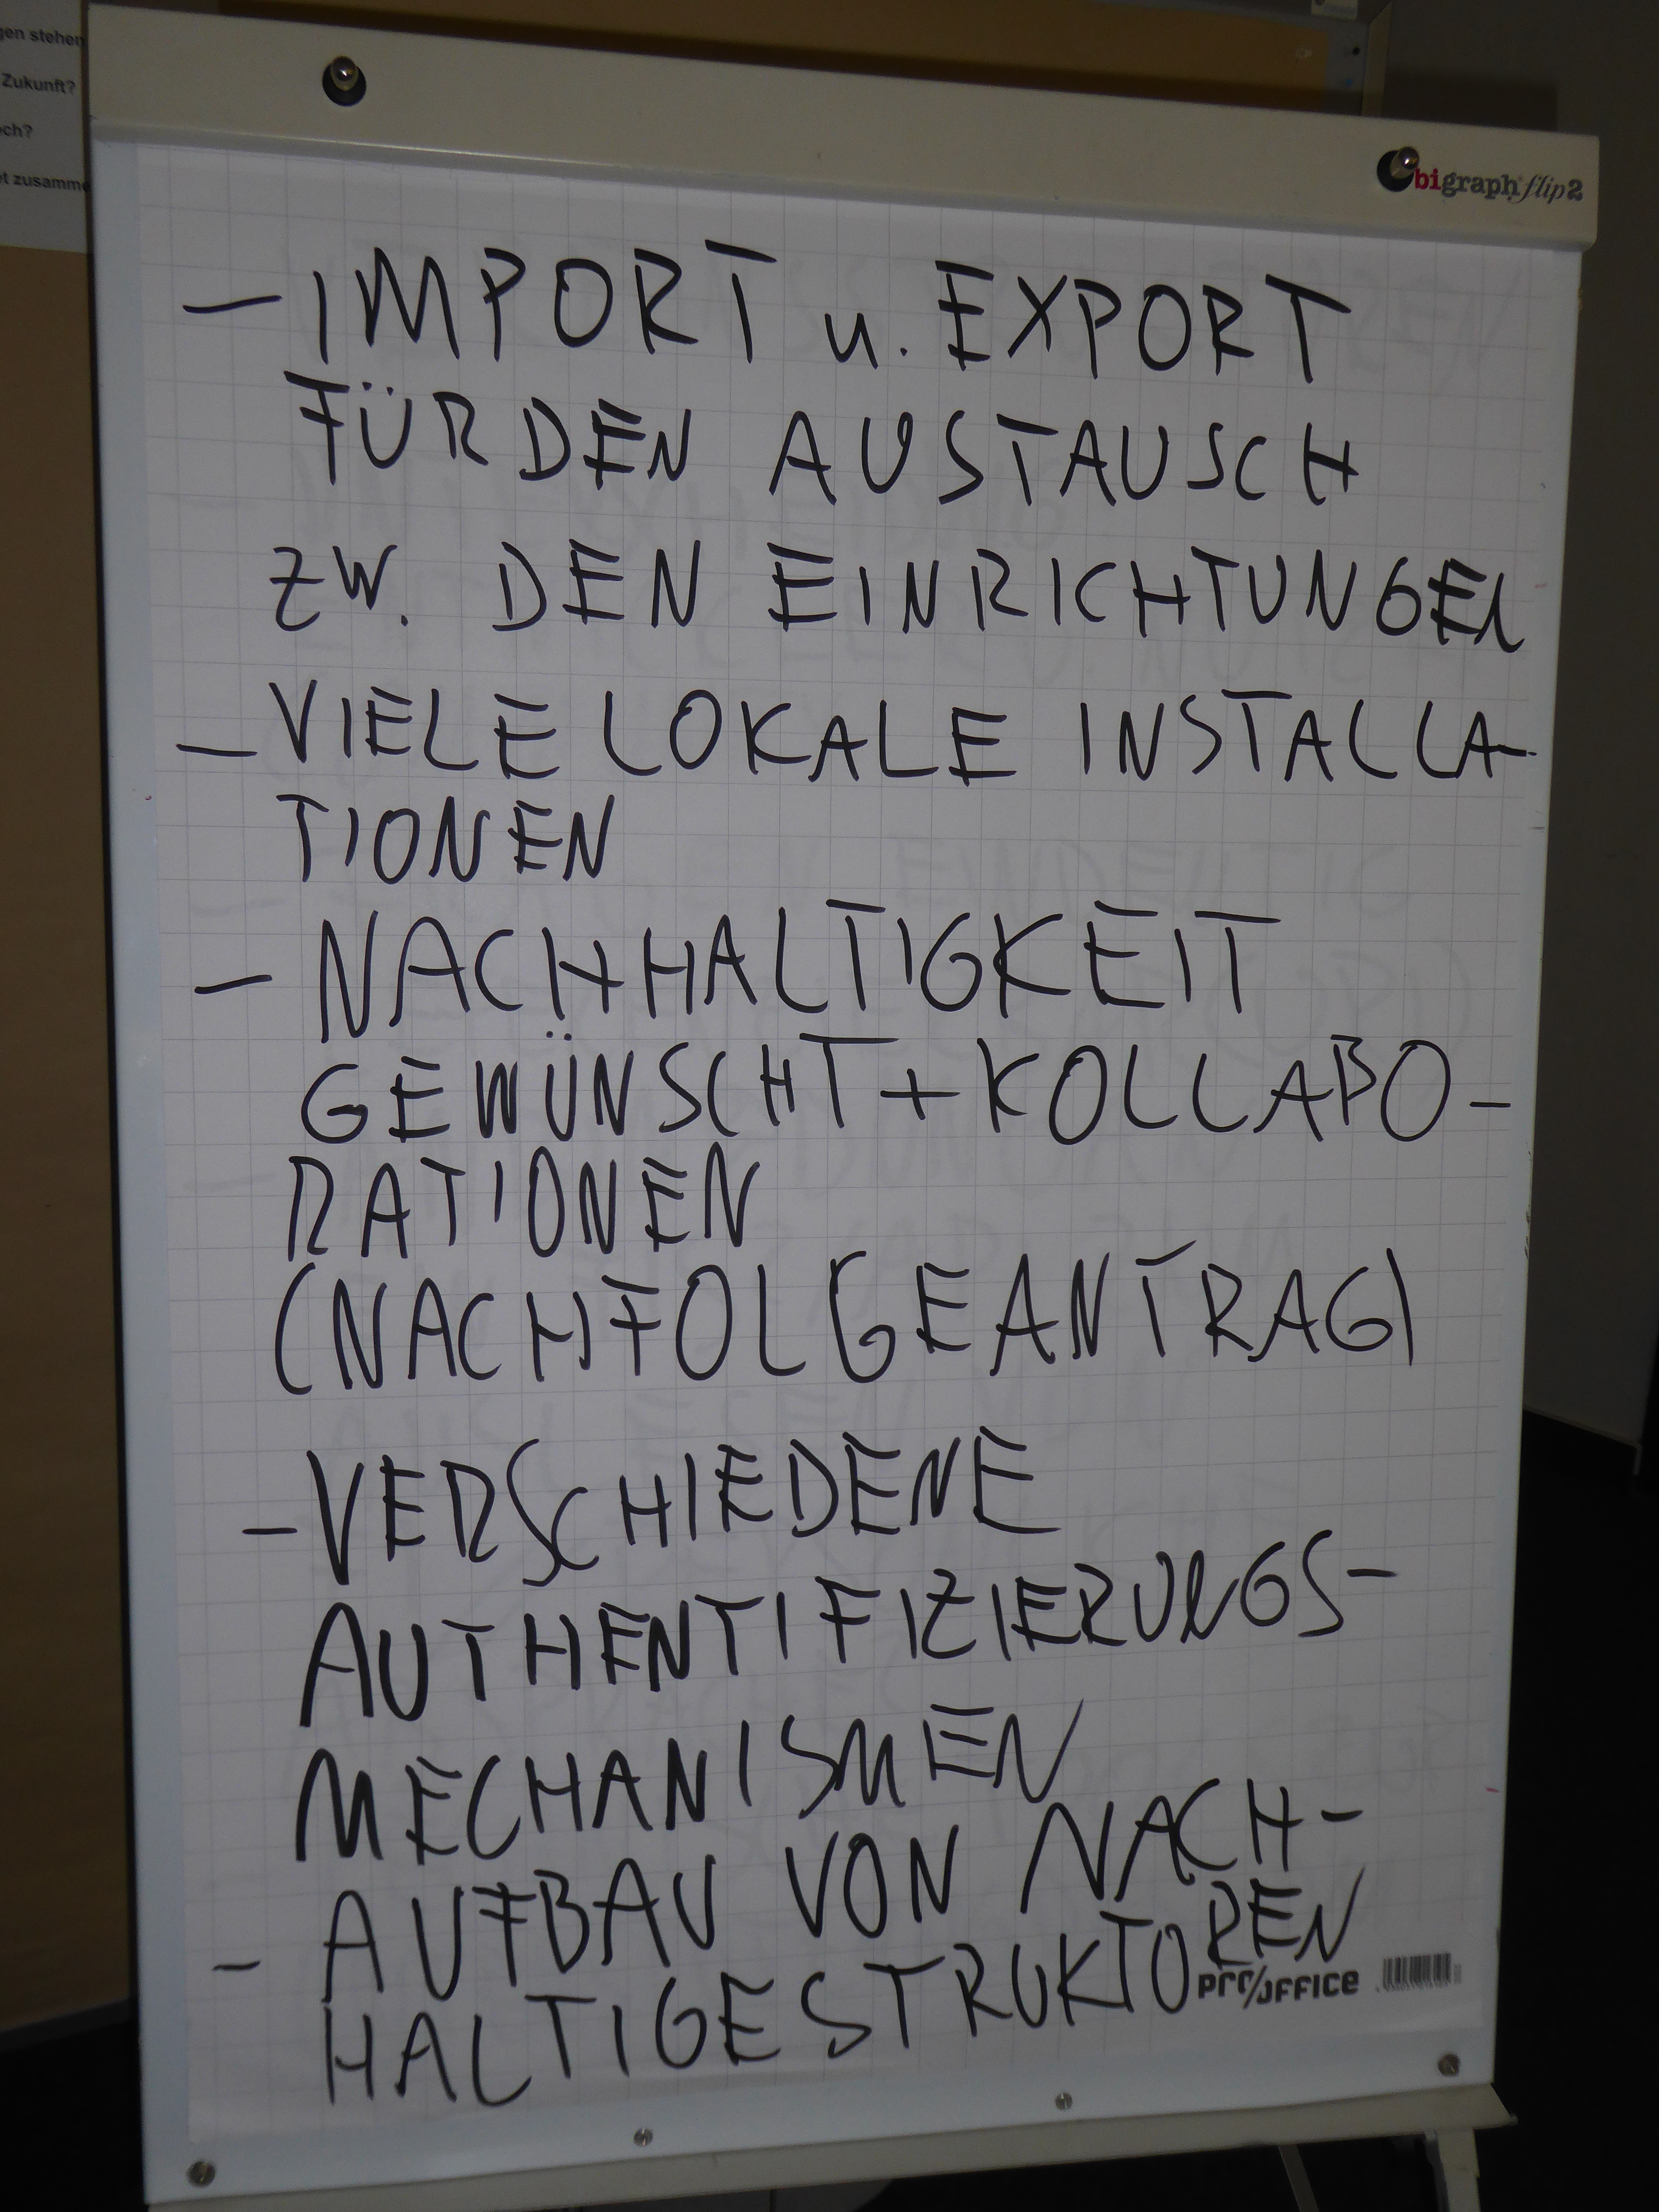 gen stehen
Zukunft?
och?
et zusamme
bigraph flip2
— IMPORT u. EXPORT
FÜR DEN AUSTAUSCH
ZW. DEN EINRICHTUNGEN
— VIELE LOKALE INSTALLA-
TIONEN
— NACHHALTIGKEIT
GEWÜNSCHT + KOLLABO-
RATIONEN
(NACHFOLGEANTRAG)
— VERSCHIEDENE
AUTHENTIFIZIERUNGS-
MECHANISMEN
- AUFBAU VON NACH-
HALTIGE STRUKTUREN
pro/office